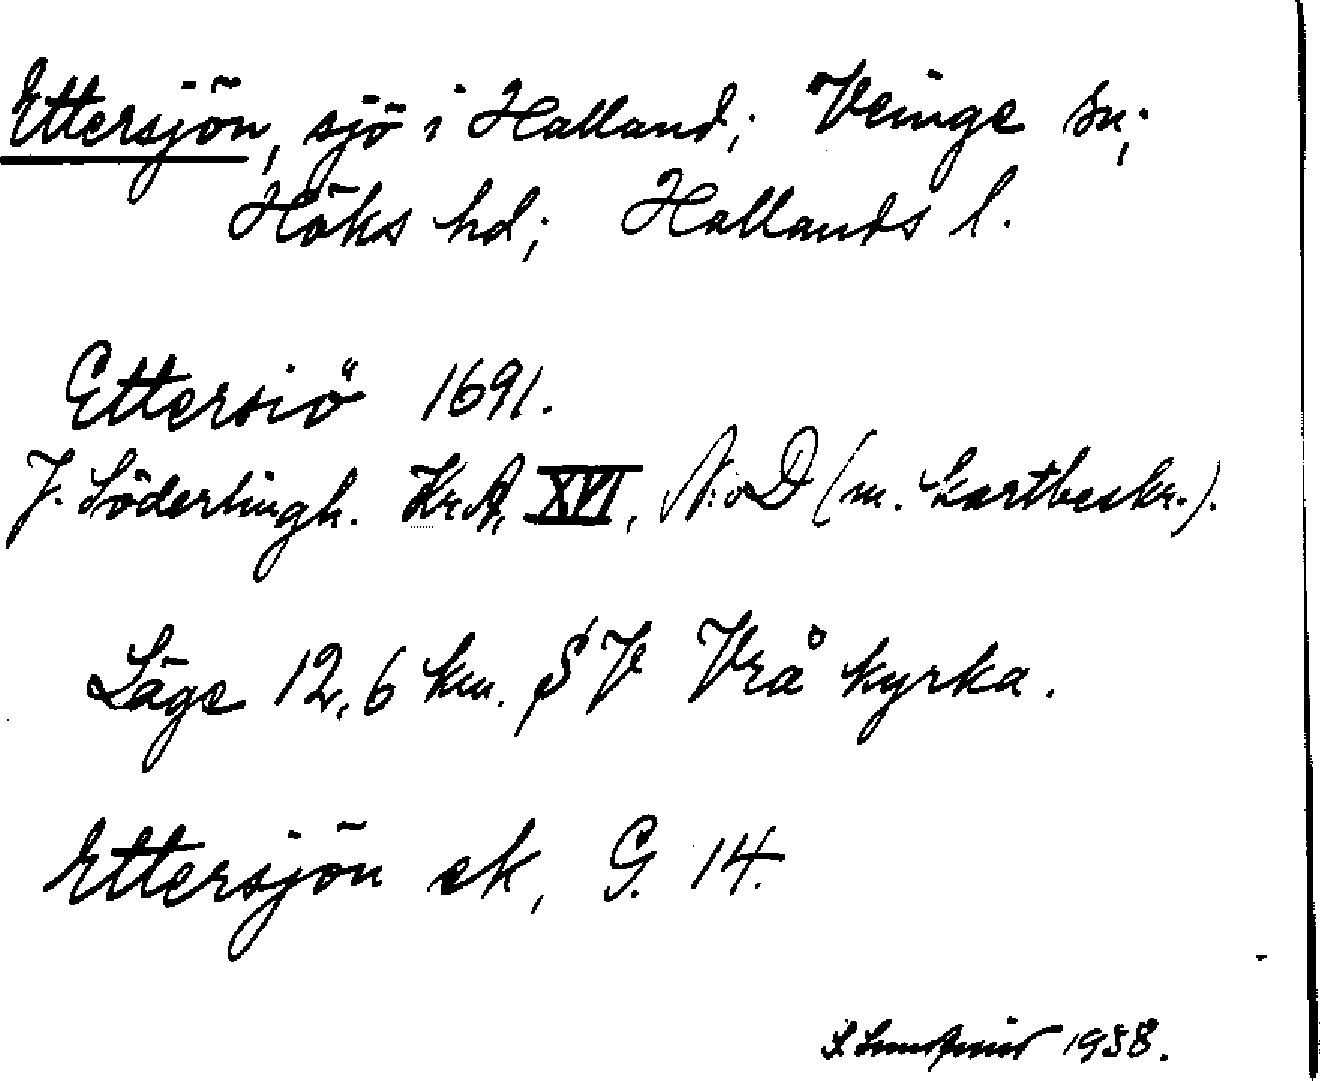 Ettersjön, sjö i Halland; Veinge sn;
Höks hd; Hallands l.
Ettersiö 1691.
J. Söderlingh. Kr.A, XVI, N:o D (m. kartbeskr.).
Läge 12,6 km. SV Vrå kyrka.
Ettersjön ek, G. 14.
1938.